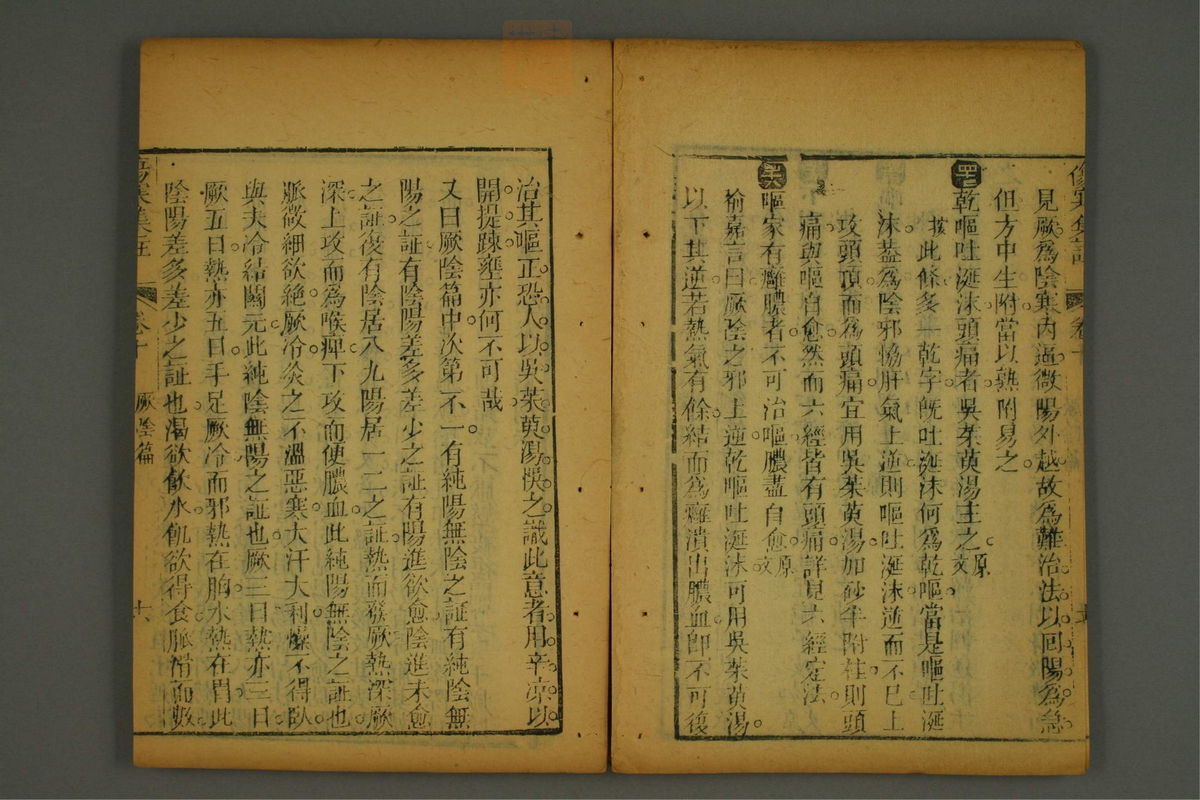 傷寒集註
卷十
見厥爲陰寒内逼微陽外越故爲難治法以囘陽爲急
但方中生附當以熟附易之
罕乾嘔吐涎沫頭痛者吳茱萸湯主之原文
按此條多一乾字旣吐涎沫何爲乾嘔當是嘔吐涎
沫葢爲陰邪恊肝氣上逆則嘔吐涎沫逆而不已上
攻頭頂而爲頭痛宜用吳茱萸湯加砂半附桂則頭
痛與嘔自愈然而六經皆有頭痛詳見六經定法
嘔家有癰膿者不可治嘔膿盡自愈原文
喻嘉言曰厥陰之邪上逆乾嘔吐涎沫可用吳茱萸湯
以下其逆若熱氣有餘結而爲癰潰出膿血卽不可復
治其嘔正恐人以吳茱萸湯悞之識此意者用辛凉以
開提踈壅亦何不可哉
又曰厥陰篇中次第不一有純陽無陰之証有純陰無
陽之証有陰陽差多差少之証有陽進欲愈陰進未愈
之証復有陰居八九陽居一二之証熱而發厥熱深厥
深上攻而爲喉痺下攻而便膿血此純陽無陰之証也
脈微細欲絶厥冷灸之不溫惡寒大汗大利燥不得臥
與夫冷結關元此純陰無陽之証也厥三日熱亦三日
厥五日熱亦五日手足厥冷而邪熱在胸水熱在胃此
陰陽差多差少之証也渴欲飲水飢欲得食脈滑而數
傷寒集註
卷十
厥陰篇
十六